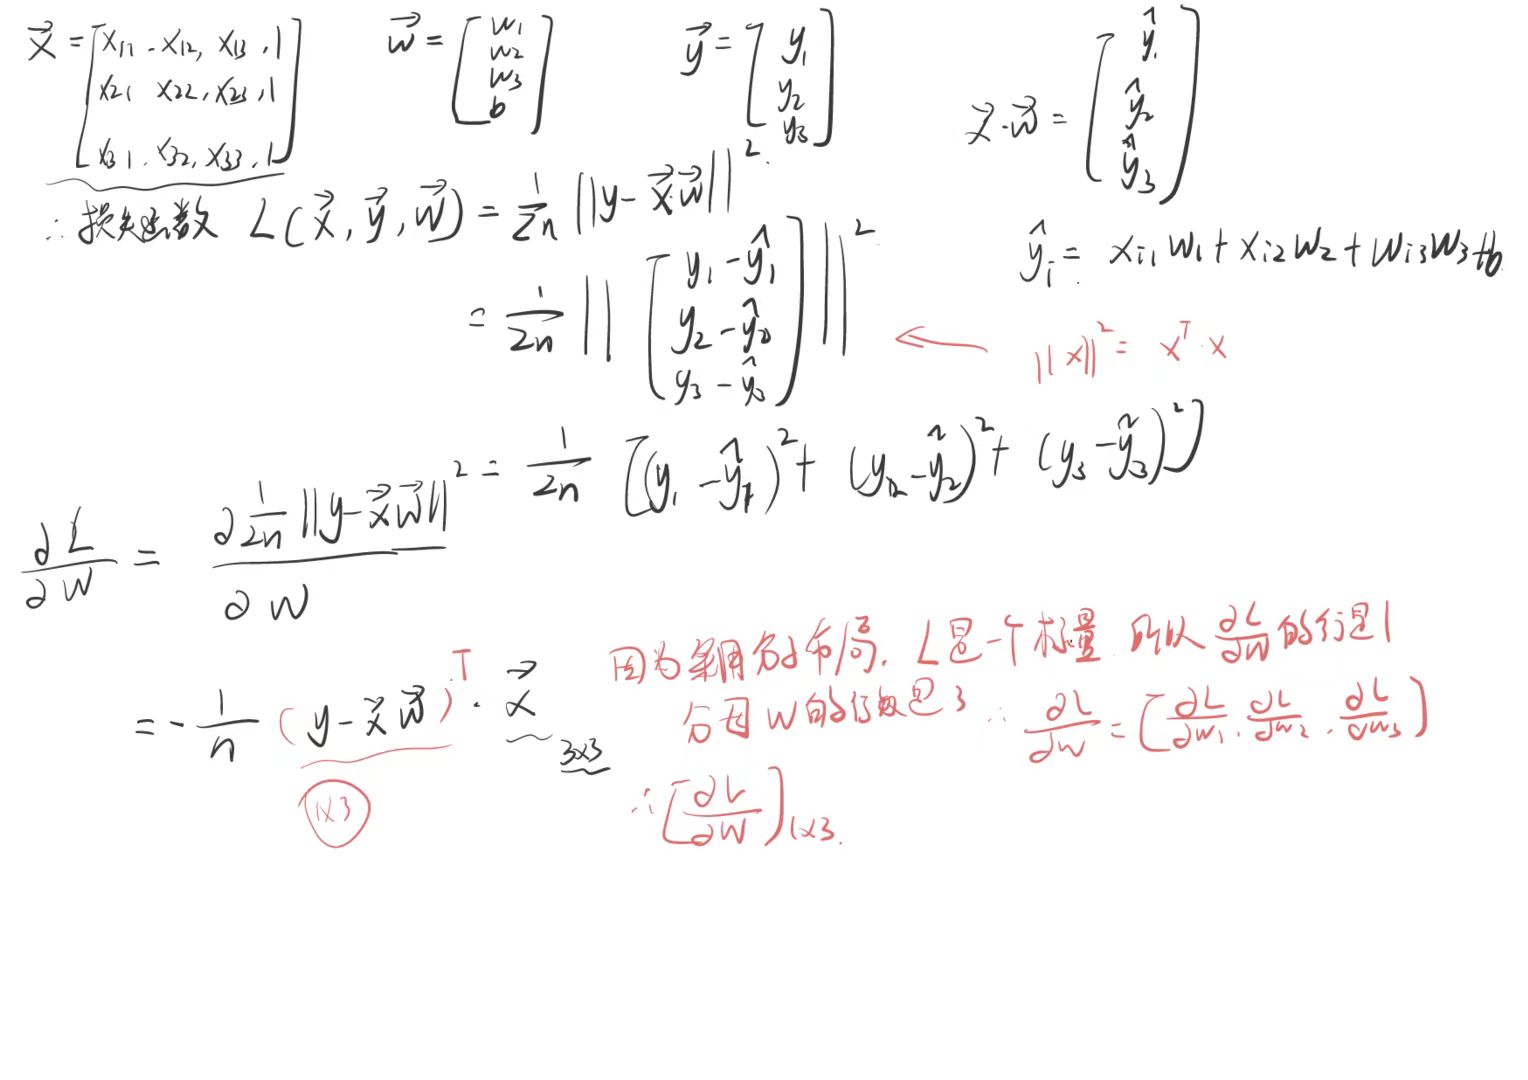 x⃗ = [x11 . x12, x13 , 1
x21 x22, x23, 1
x31 . x32, x33, 1]
w⃗ = [w1
w2
w3
b]
y⃗ = [y1
y2
y3]
x⃗·w⃗ = [ŷ1
ŷ2
ŷ3]
∴ 损失函数 L(x⃗, y⃗, w⃗) = 1/2n ||y - x⃗w⃗||²
ŷi = xi1 w1 + xi2 w2 + wi3 w3 + b
= 1/2n || [y1 - ŷ1
y2 - ŷ2
y3 - ŷ3] ||²
← ||x||² = xᵀ·x
= 1/2n [(y1 - ŷ1)² + (y2 - ŷ2)² + (y3 - ŷ3)²]
∂L/∂w = ∂ 1/2n ||y - x⃗w⃗||² / ∂w
= - 1/n (y - x⃗w⃗)ᵀ · x⃗ 3x3
1x3
因为采用分子布局. L是一个标量 所以 ∂L/∂w 的行是1
分母w的行数是3 ∴ ∂L/∂w = [∂L/∂w1 . ∂L/∂w2 . ∂L/∂w3]
∴ [∂L/∂w]1x3.